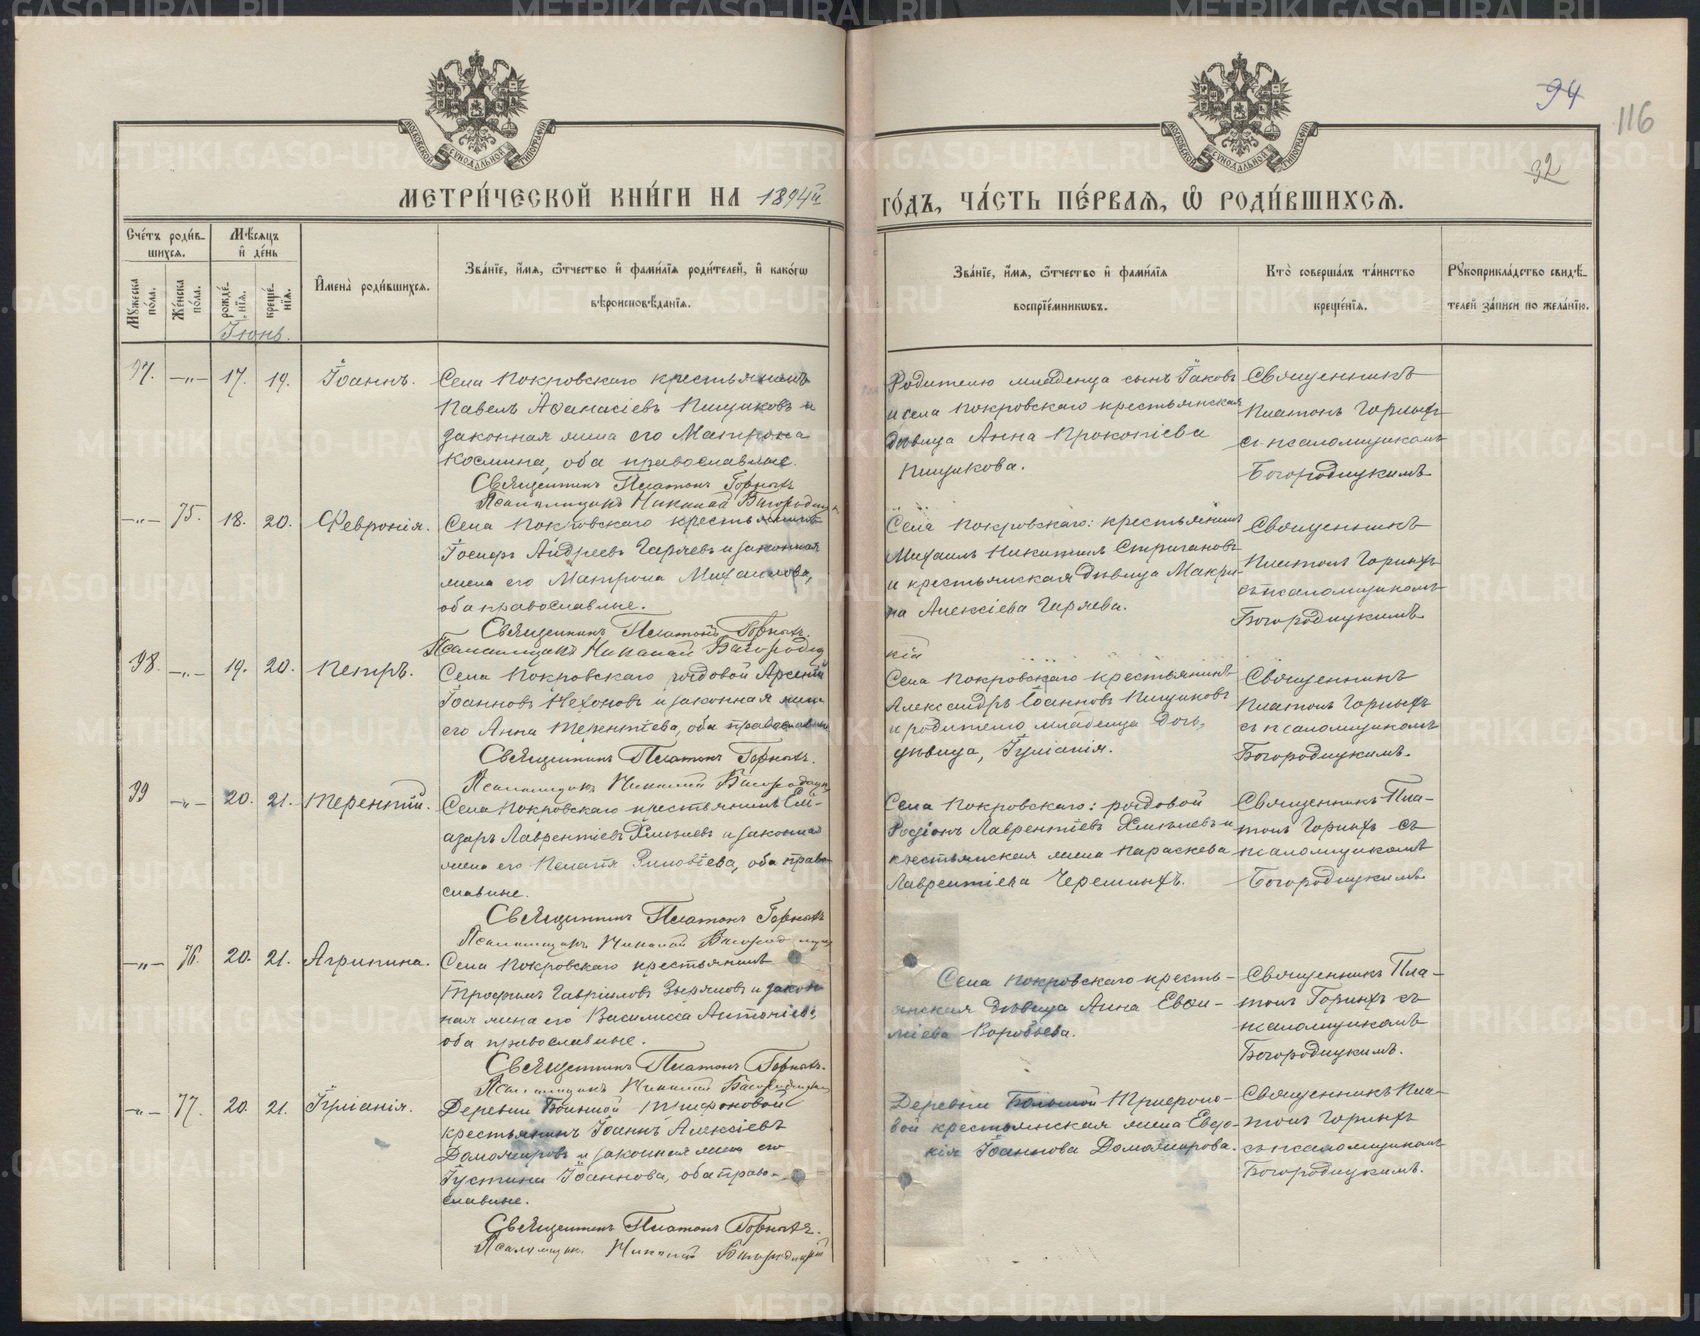 94
116
32
МЕТРИ́ЧЕСКОЙ КНИ́ГИ НА 1894й
ГО́ДЪ, ЧА́СТЬ ПЕ́РВАѦ, Ѡ҆ РОДИ́ВШИХСѦ.
Сче́тъ роди́в-
шихсѧ.
Мѹжеска по́ла.
Же́нска по́ла.
Мѣ́сѧцъ
и҆ де́нь
рожде́-
нїѧ.
креще́-
нїѧ.
И҆мена̀ роди́вшихсѧ.
Зва́нїе, и҆́мѧ, ѻ҆́тчество и҆ фами́лїѧ роди́телей, и҆ како́гѡ
вѣроисповѣ́данїѧ.
Зва́нїе, и҆́мѧ, ѻ҆́тчество и҆ фами́лїѧ
воспрїе́мникѡвъ.
Кто̀ соверша́лъ та́инство
креще́нїѧ.
Рꙋкоприкла́дство свидѣ́-
телей за́писи по жела́нїю.
Іюнь.
97. —„— 17. 19. Іоаннъ.
Села Покровскаго крестьянинъ
Павелъ Аѳанасіевъ Пищиковъ и
законная жена его Матрона
Космина, оба православные.
Священникъ Платонъ Горныхъ
Псаломщикъ Николай Богородицк
Родителю младенца сынъ Іаковъ
и села Покровскаго крестьянская
дѣвица Анна Прокопіева
Пищикова.
Священникъ
Платонъ Горныхъ
съ псаломщикомъ
Богородицкимъ
—„— 75. 18. 20. Февронія.
Села Покровскаго крестьянинъ
Іосифъ Андреевъ Гаряевъ и законная
жена его Матрона Михаилова,
оба православные.
Священникъ Платонъ Горныхъ.
Псаломщикъ Николай Богородиц
кій
Села Покровскаго: крестьянинъ
Михаилъ Никитинъ Стригановъ
и крестьянская дѣвица Макри-
на Алексіева Гаряева.
Священникъ
Платонъ Горныхъ
съ псаломщикомъ
Богородицкимъ
98. —„— 19. 20. Петръ.
Села Покровскаго рядовой Арсеній
Іоанновъ Нехоновъ и законная жена
его Анна Терентіева, оба православные
Священникъ Платонъ Горныхъ.
Псаломщикъ Николай Богородицк
Села Покровскаго крестьянинъ
Александръ Іоанновъ Пищиковъ
и родителю младенца дочь,
дѣвица, Іуліанія.
Священникъ
Платонъ Горныхъ
съ псаломщикомъ
Богородицкимъ.
99 —„— 20. 21. Терентій.
Села Покровскаго крестьянинъ Ели-
азаръ Лаврентіевъ Хмелевъ и законная
жена его Пелагія Зиновіева, оба право-
славные.
Священникъ Платонъ Горныхъ
Псаломщикъ Николай Богородицк
Села Покровскаго: рядовой
Родіонъ Лаврентіевъ Хмелевъ и
крестьянская жена Параскева
Лаврентіева Черемныхъ.
Священникъ Пла-
тонъ Горныхъ съ
псаломщикомъ
Богородицкимъ
—„— 76. 20. 21. Агрипина.
Села Покровскаго крестьянинъ
Трофимъ Гавріиловъ Звѣряновъ и закон-
ная жена его Василисса Антоніева,
оба православные.
Священникъ Платонъ Горныхъ.
Псаломщикъ Николай Богородицкій
Села Покровскаго кресть-
янская дѣвица Анна Евѳи-
міева Воробьева.
Священникъ Пла-
тонъ Горныхъ съ
псаломщикомъ
Богородицкимъ.
—„— 77. 20. 21. Іуліанія.
Деревни Большой Трифоновой
крестьянинъ Іоаннъ Алексіевъ
Доможировъ и законная жена его
Іустина Іоаннова, оба право-
славные.
Священникъ Платонъ Горныхъ.
Псаломщикъ Николай Богородицкій
Деревни Большой Трифоно-
вой крестьянская жена Евдо-
кія Іоаннова Доможирова.
Священникъ Пла-
тонъ Горныхъ
съ псаломщикомъ
Богородицкимъ.